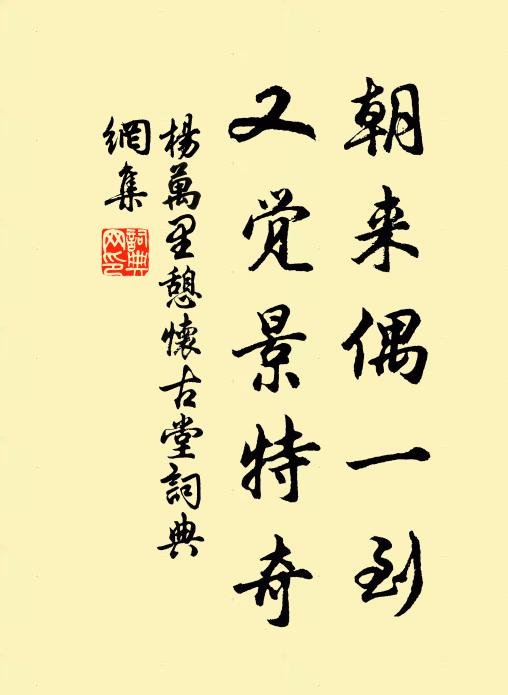 朝来偶一到
又觉景特奇
楊萬里憩懷古堂詞典
網集
詞典
网印